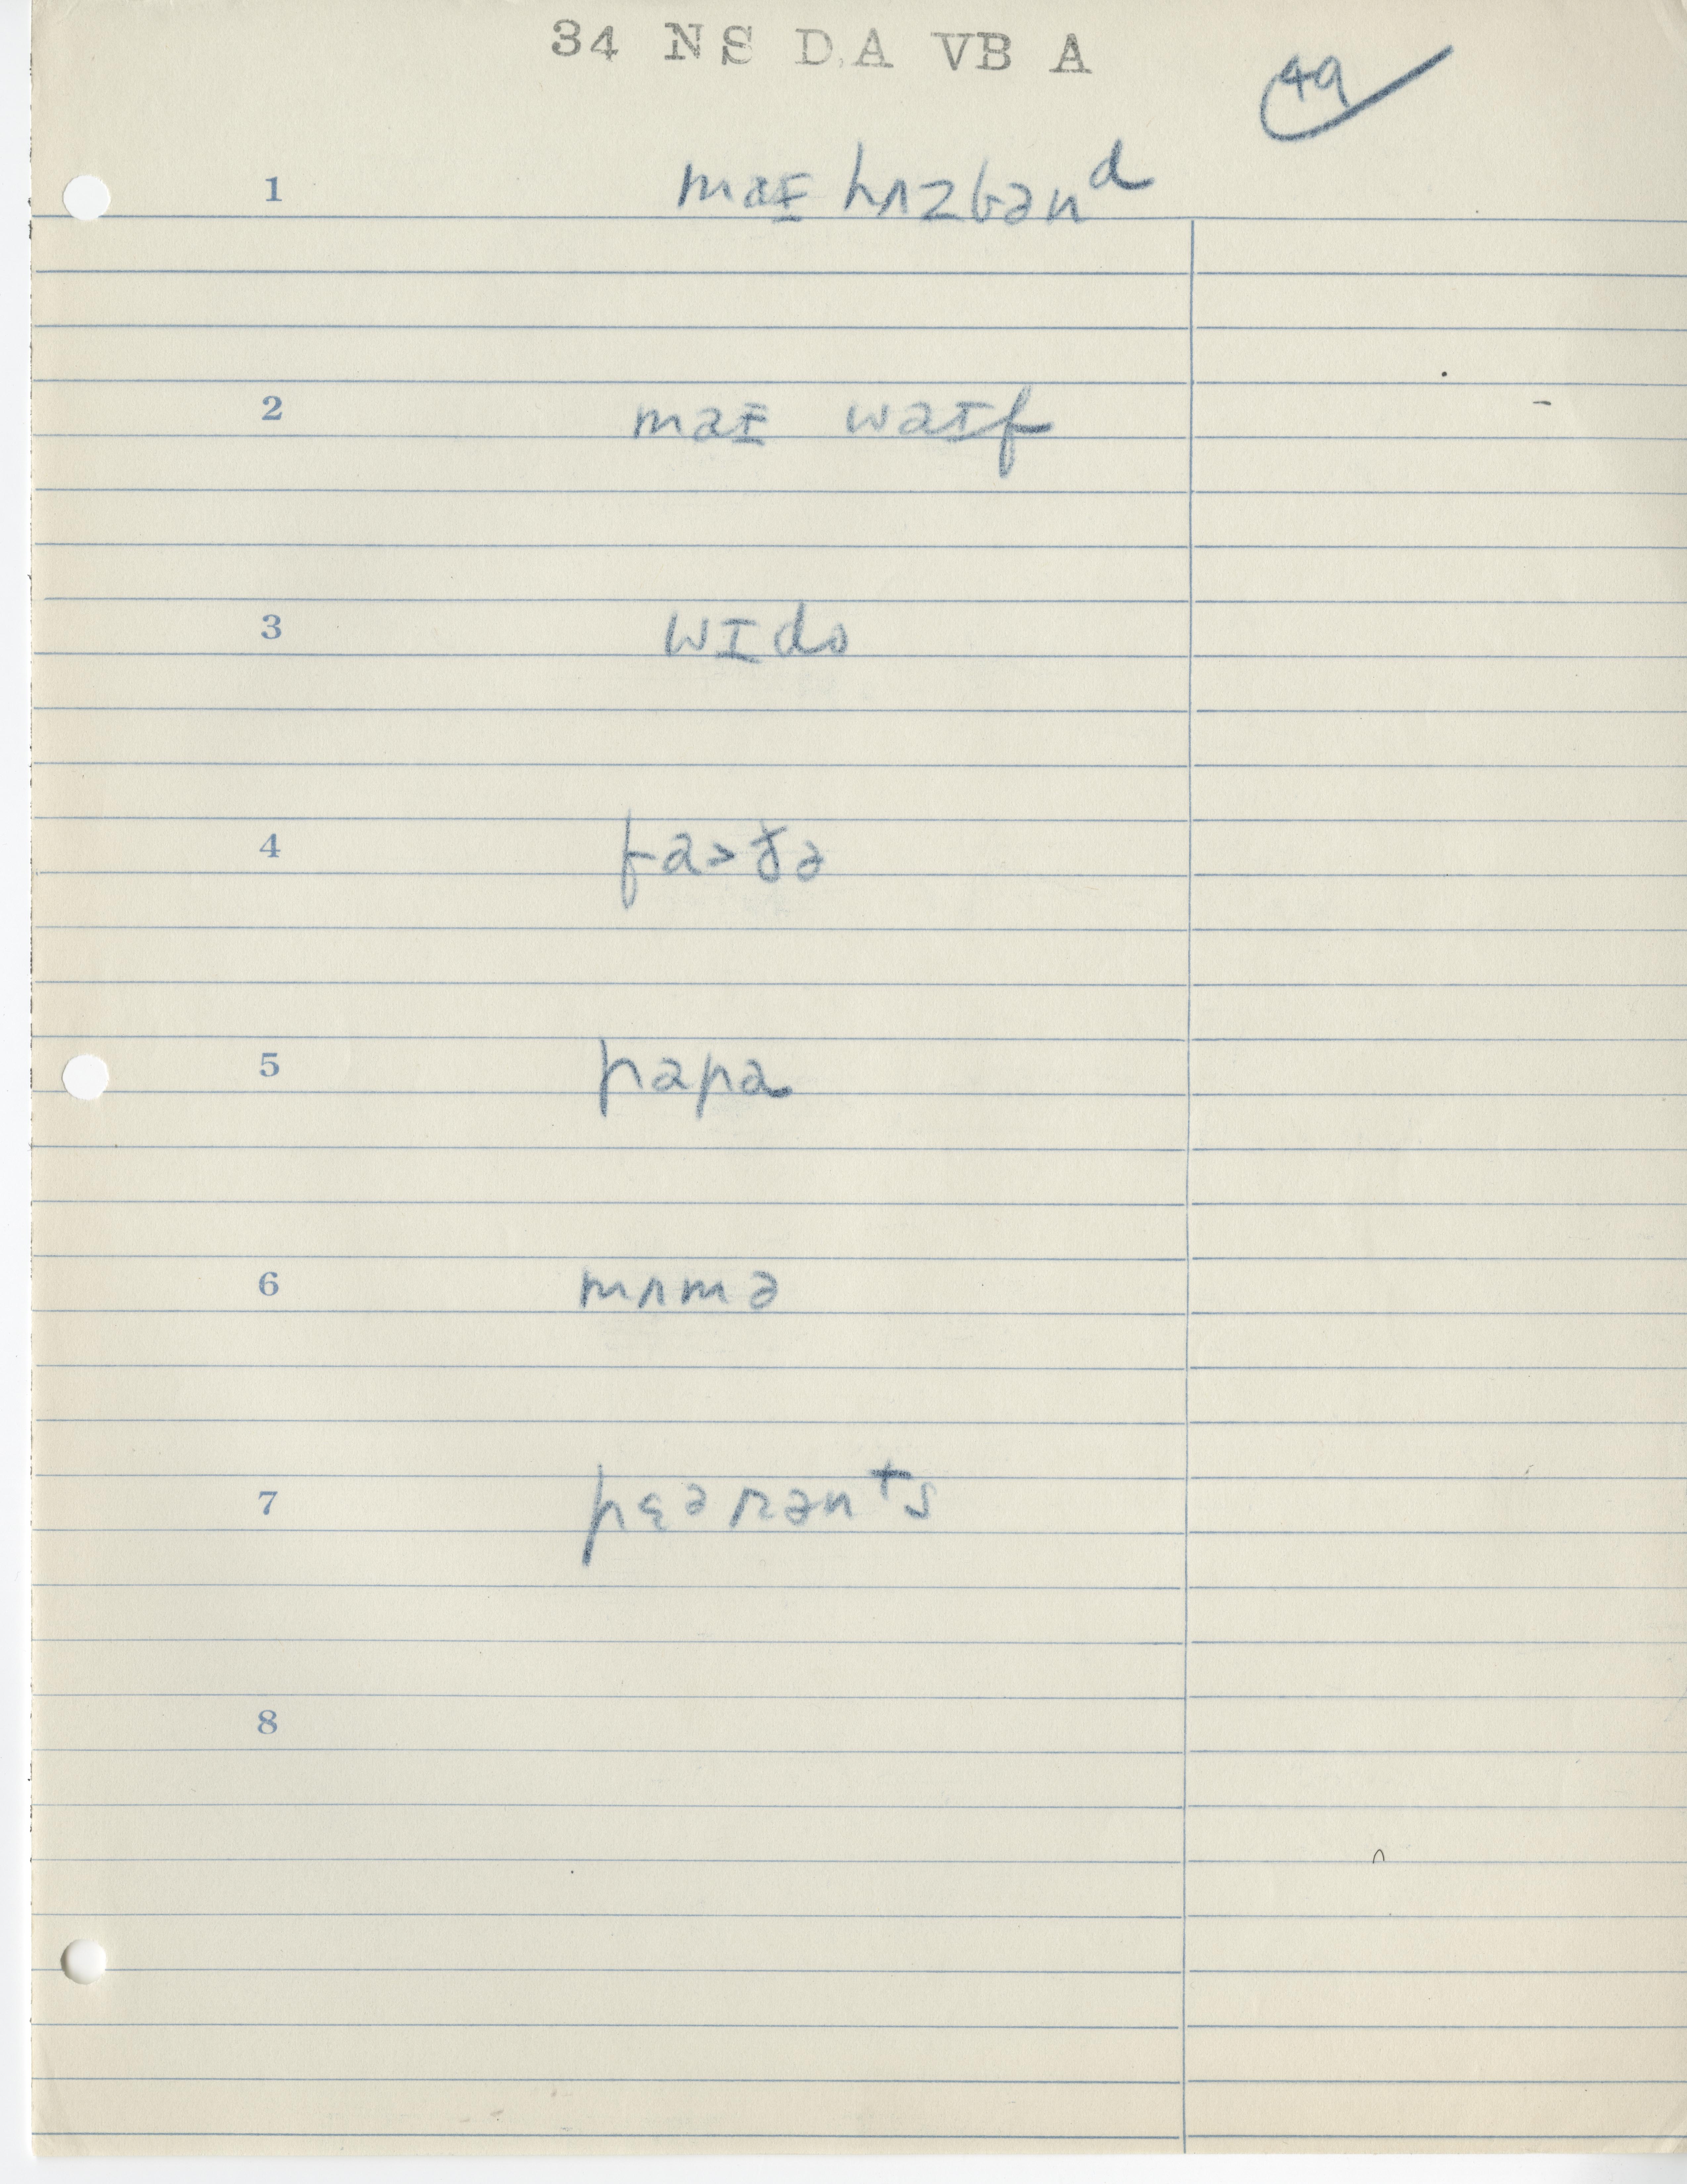 34 NS D.A VB A
49
1 maɪ hʌzbənᵈ
2 maɪ waɪf
3 wɪdo
4 fa˃ðə
5 papa
6 mʌmə
7 pɛərənᵗs
8